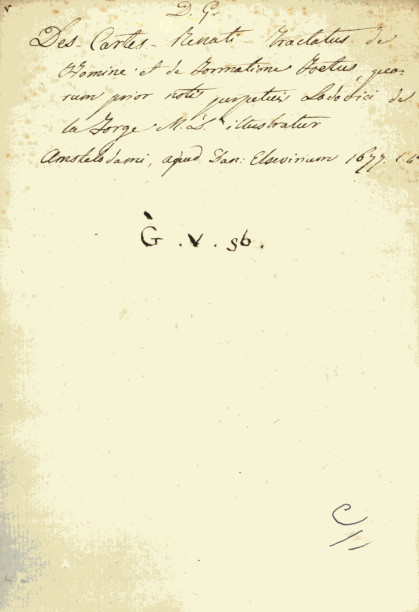 D. G.
Des-Cartes-Renati-Tractatus de
Homine et de Formatione Foetus, quo-
rum prior notis perpetuis Lodovici de
la Forge M. D. illustratur
Amstelodami, apud Dan: Elsevirium 1677.
G. V. 56.